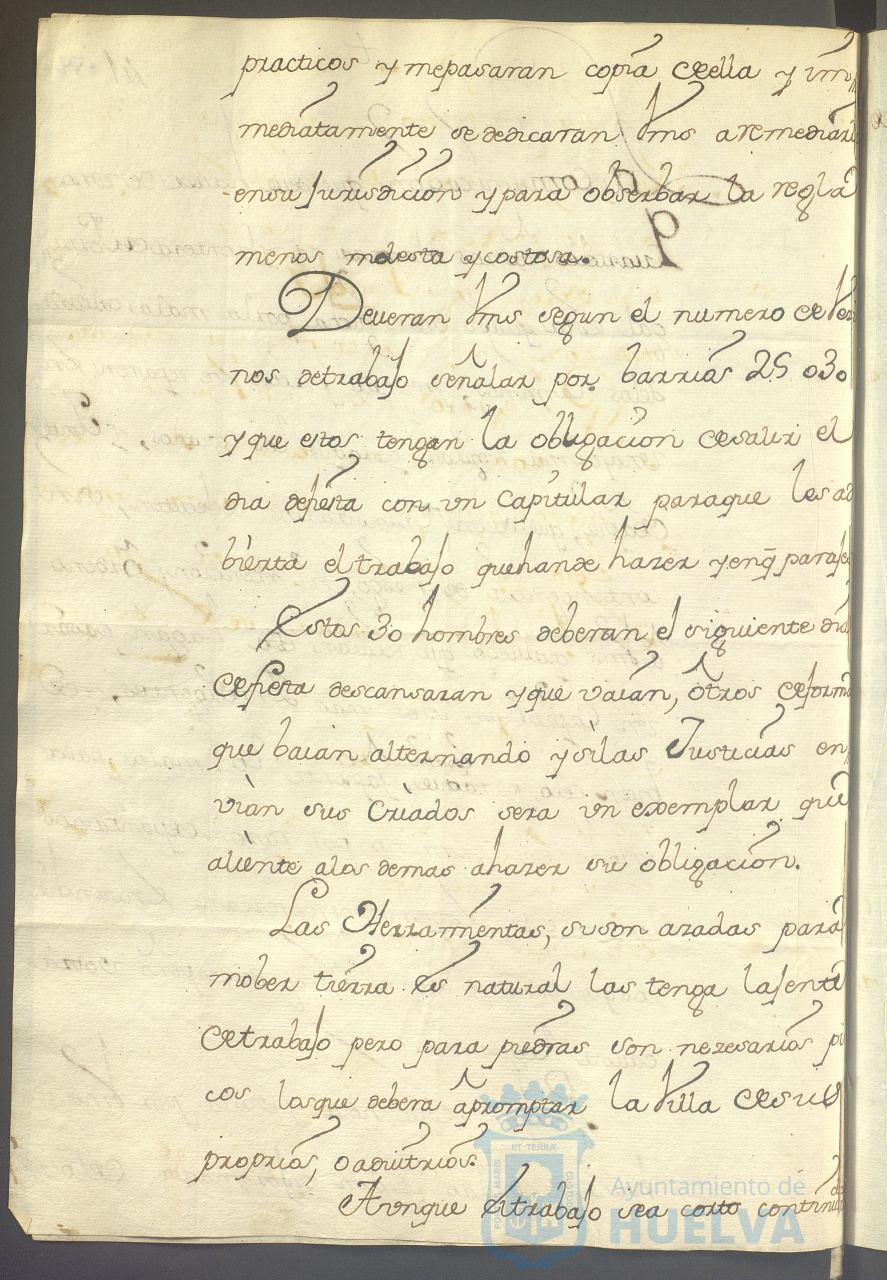 practicos y mepasaran copia deella y im
mediatamente se dedicaran Vms aremediarl
ensu Jurisdicion y para obserbar la regla
menos molesta y costosa.
Deveran Vms segun el numero de Veci
nos detrabajo señalar por barrios 25 o 30
y que estos tengan la obligacion desalir el
dia defiesta con vn Capitular paraque les ad
bierta el trabajo quehande hazer y enq paraje
Estos 30 hombres deberan el siguiente dia
defiesta descansaran y que vaian, otros deforma
que baian alternando y silas Justicias en
vian sus Criados sera vn exemplar que
aliente alos demas ahazer su obligacion.
Las Herramientas, suson azadas para
mober tierra Es natural las tenga lajente
detrabajo pero para piedras son nezesarios pi
cos losque debera apromptar la Villa desus
proprios, o aduitrios.
Aunque Eltrabajo sea corto continuado
Ayuntamiento de
HUELVA